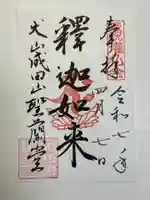 奉拝
令和七年
四月七日
釋迦如来
犬山成田山聖願堂